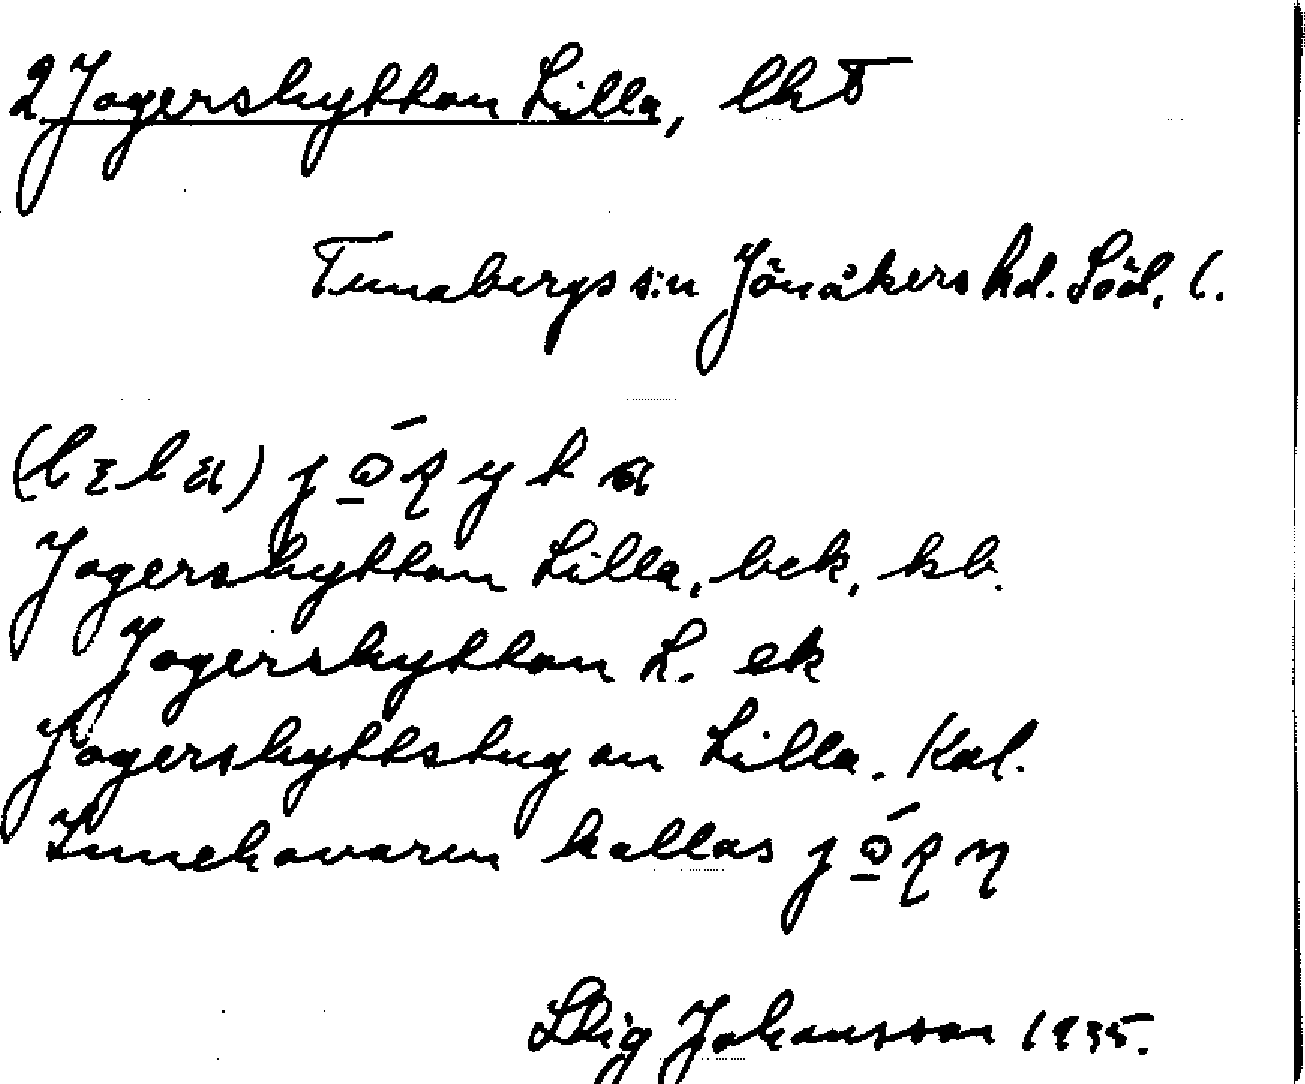 2. Jagerskyttan Lilla, lht
Tunabergs s:n Jönåkers hd. Söd. l.
Jagerskyttan Lilla, bek, kb.
Jagerskyttan L. ek
Jagerskyttstugan Lilla. Kal.
Innehavaren kallas
Stig Johansson 1935.